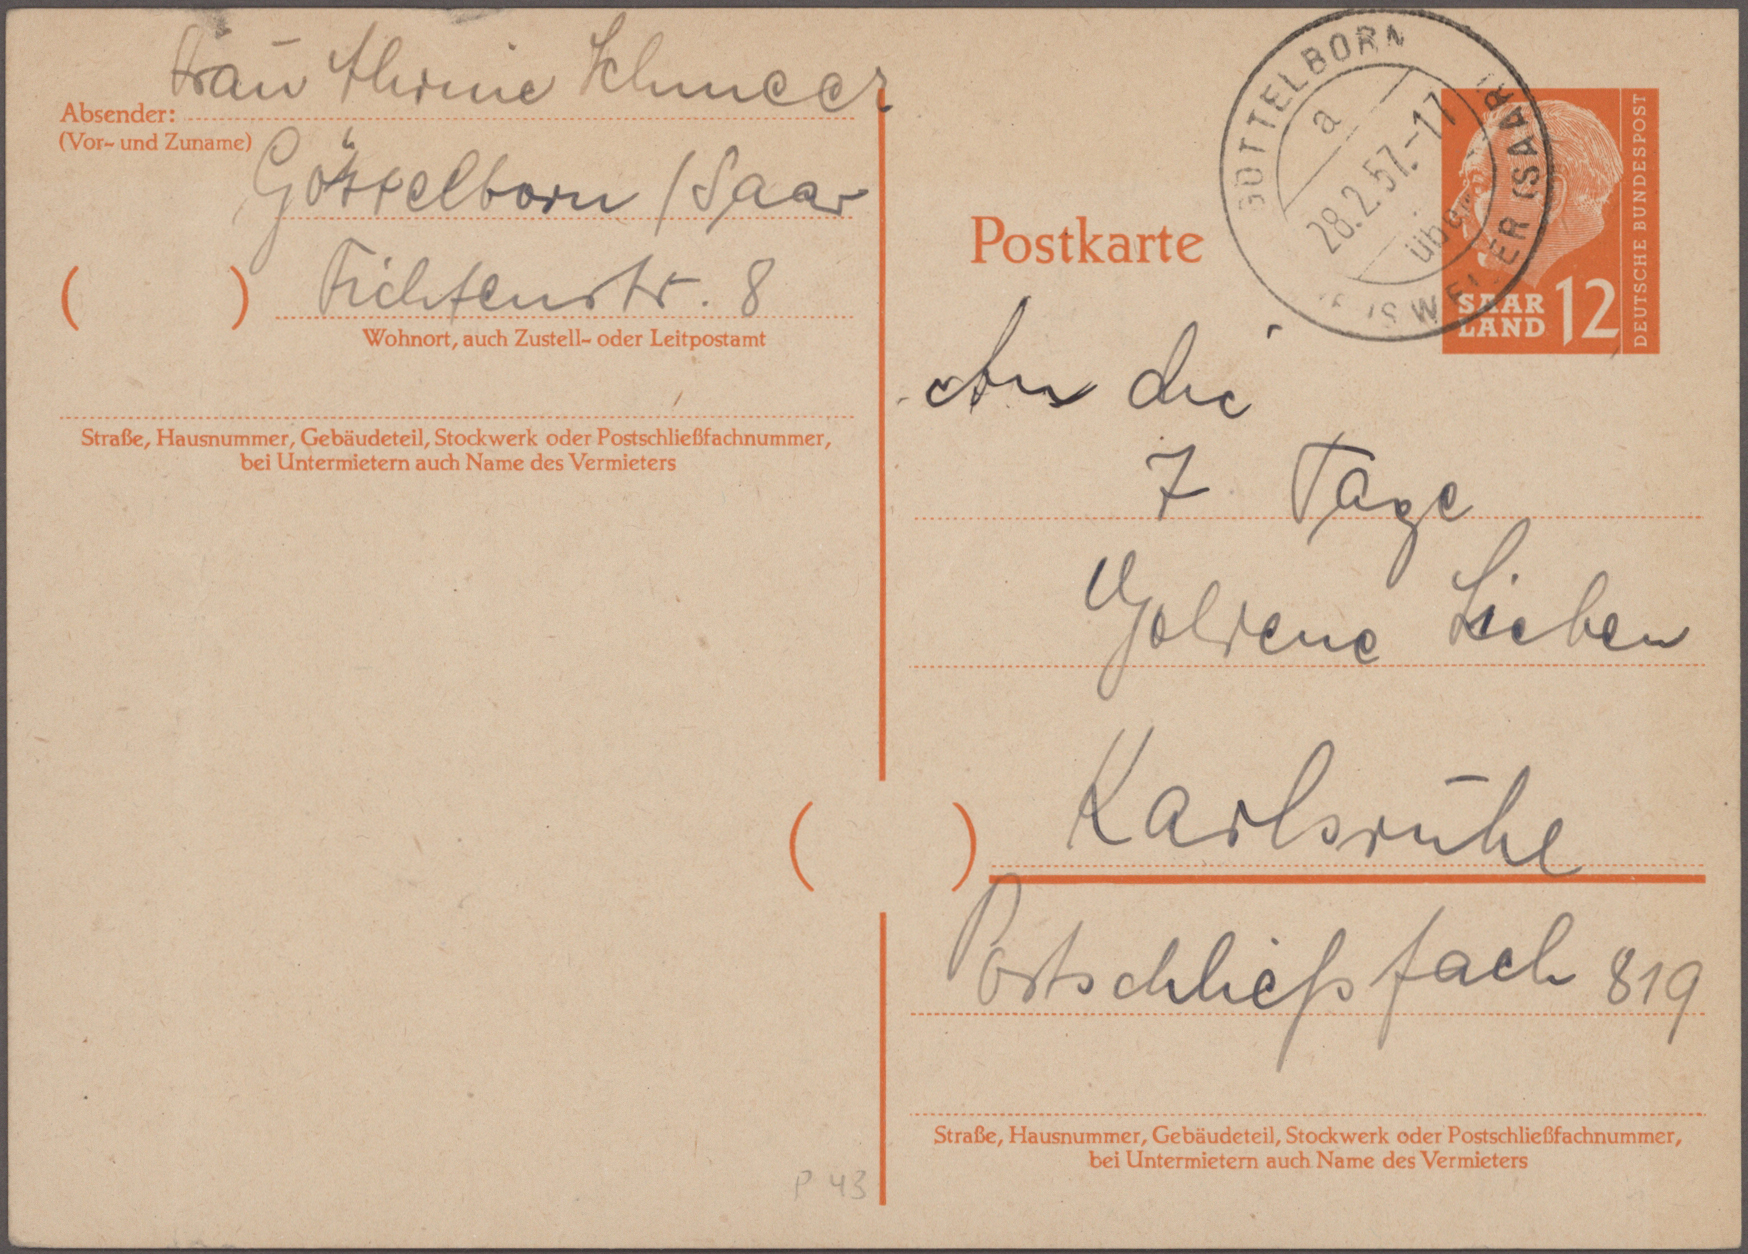 Frau Schmeer
Absender:
(Vor- und Zuname)
Göttelborn / Saar
( ) Fichtenstr. 8
Wohnort, auch Zustell- oder Leitpostamt
Straße, Hausnummer, Gebäudeteil, Stockwerk oder Postschließfachnummer,
bei Untermietern auch Name des Vermieters
GÖTTELBORN
a
28.2.57.-17
über
(SAAR)
SAAR
LAND 12
DEUTSCHE BUNDESPOST
Postkarte
An die
7 Tage
Goldene Sieben
Karlsruhe
( )
Postschließfach 819
Straße, Hausnummer, Gebäudeteil, Stockwerk oder Postschließfachnummer,
bei Untermietern auch Name des Vermieters
P 43